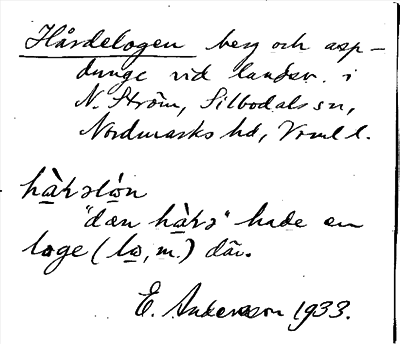 Hårdelogen berg och asp-
dunge vid landsv. i
N. Ström, Silbodals sn,
Nordmarks hd, Vrml l.
hàrəlón
"dæn hàrə" hade en
loge (lo, m.) där.
E. Andersson 1933.